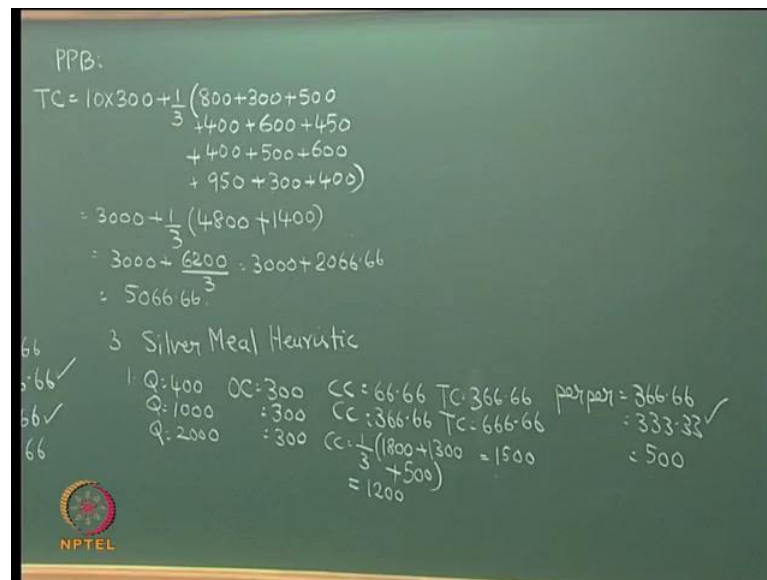 PPB:
TC = 10×300 + 1/3 (800+300+500
+400+600+450
+400+500+600
+ 950 +300+400)
= 3000 + 1/3 (4800 + 1400)
= 3000 + 6200/3 = 3000 + 2066.66
= 5066.66
66
.66 ✓
66 ✓
66
3 Silver Meal Heuristic
1. Q=400 OC=300 CC=66.66 TC=366.66 per per = 366.66
Q=1000 =300 CC=366.66 TC=666.66 =333.33 ✓
Q=2000 =300 CC=1/3 (1800+1300 =1500 =500
+500)
=1200
NPTEL